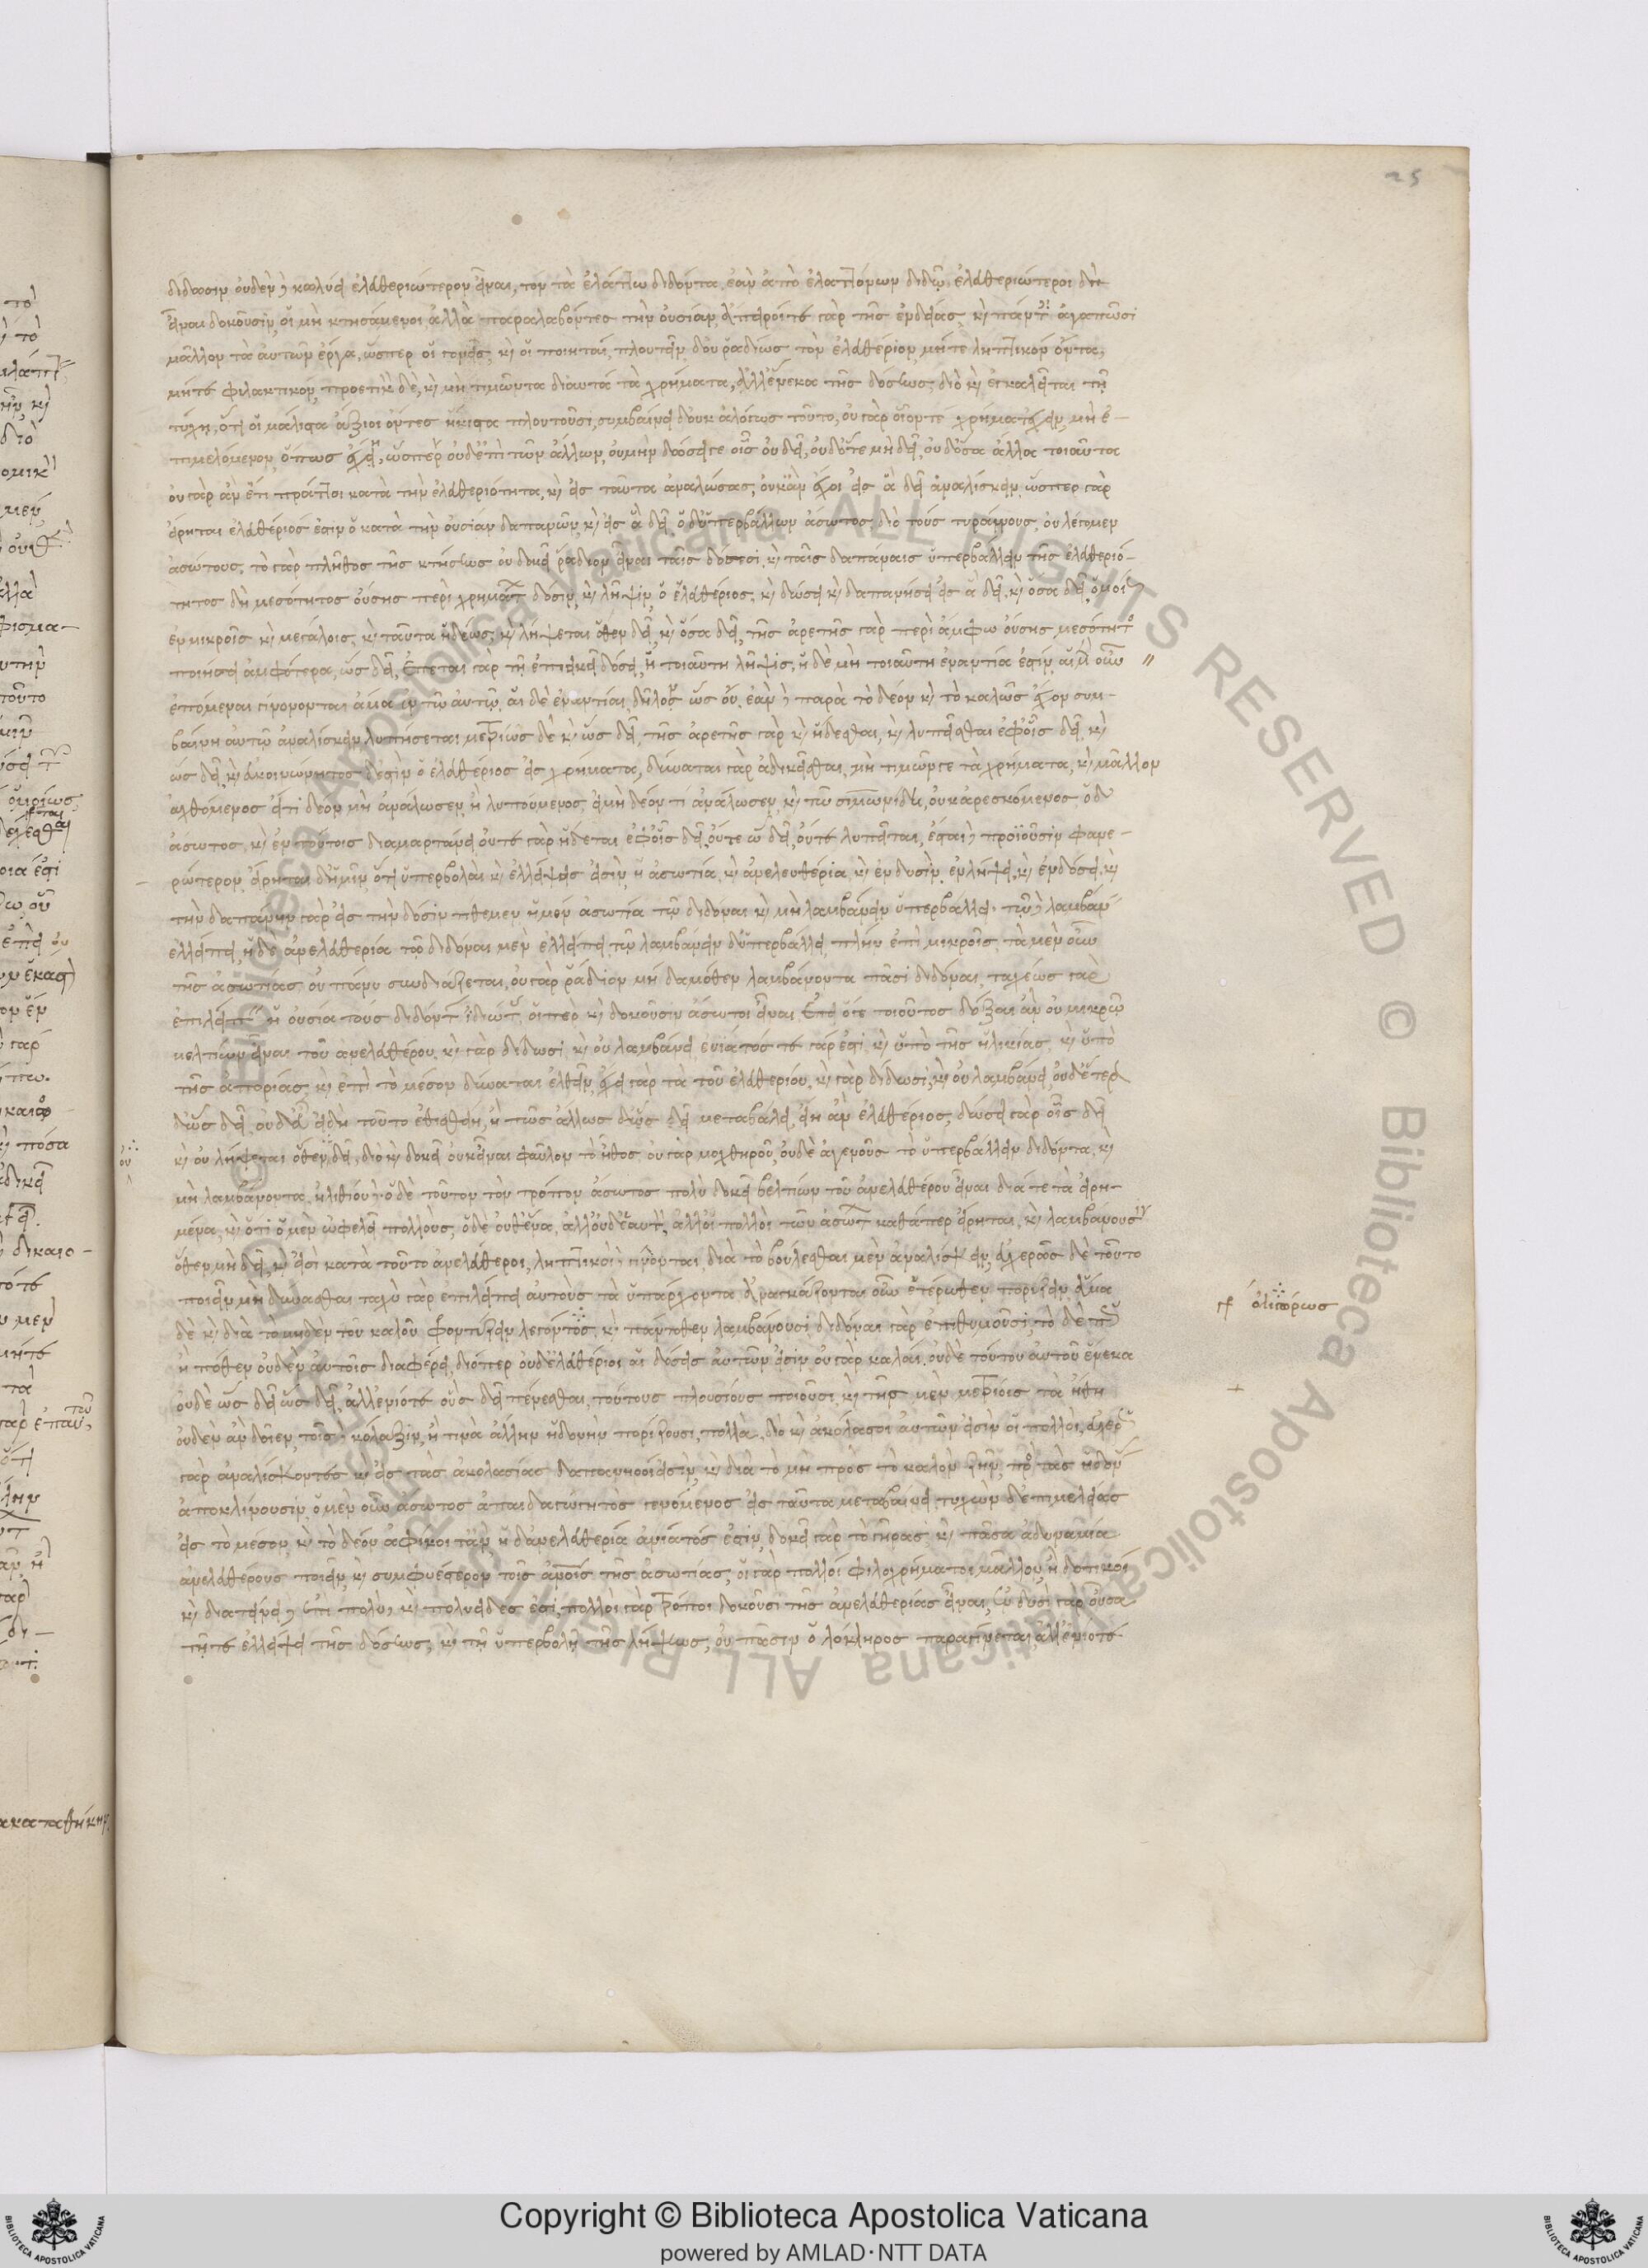 25
δίδωσιν οὐδὲν δὲ κωλύει ἐλευθεριώτερον εἶναι, τὸν τὰ ἐλάττω διδόντα, ἐὰν ἀπὸ ἐλαττόνων διδῷ. ἐλευθεριώτεροι δὲ
εἶναι δοκοῦσιν, οἱ μὴ κτησάμενοι ἀλλὰ παραλαβόντες τὴν οὐσίαν, ἄπειροί τε γὰρ τῆς ἐνδείας, καὶ πάντες ἀγαπῶσι
μᾶλλον τὰ αὑτῶν ἔργα, ὥσπερ οἱ γονεῖς, καὶ οἱ ποιηταί, πλουτεῖν δ' οὐ ῥᾴδιως τὸν ἐλευθέριον, μήτε ληπτικὸν ὄντα,
μήτε φυλακτικόν, προετικὸν δὲ, καὶ μὴ τιμῶντα δι' αὐτὰ τὰ χρήματα, ἀλλ' ἕνεκα τῆς δόσεως, διὸ καὶ ἐγκαλεῖται τῇ
τύχῃ, ὅτι οἱ μάλιστα ἄξιοι ὄντες ἥκιστα πλουτοῦσι, συμβαίνει δ' οὐκ ἀλόγως τοῦτο, οὐ γὰρ οἷόν τε χρήματ' ἔχειν, μὴ ἐ-
πιμελόμενον, ὅπως ἔχει, ὥσπερ οὐδ' ἐπὶ τῶν ἄλλων, οὐ μὴν δώσει γε οἷς οὐ δεῖ, οὐδ' ὅτε μὴ δεῖ, οὐδ' ὅσα ἄλλα τοιαῦτα
οὐ γὰρ ἂν ἔτι πράττοι κατὰ τὴν ἐλευθεριότητα, καὶ εἰς ταῦτα ἀναλώσας, οὐκ ἂν ἔχοι εἰς ἃ δεῖ ἀναλίσκειν, ὥσπερ γὰρ
εἴρηται ἐλευθέριός ἐστιν ὁ κατὰ τὴν οὐσίαν δαπανῶν, καὶ εἰς ἃ δεῖ ὁ δ' ὑπερβάλλων ἄσωτος διὸ τοὺς τυράννους, οὐ λέγομεν
ἀσώτους, τὸ γὰρ πλῆθος τῆς κτήσεως οὐ δοκεῖ ῥᾴδιον εἶναι ταῖς δόσεσι καὶ ταῖς δαπάναις ὑπερβάλλειν τῆς ἐλευθεριό-
τητος δὴ μεσότητος οὔσης περὶ χρημάτων δόσιν, καὶ λῆψιν, ὁ ἐλευθέριος, καὶ δώσει καὶ δαπανήσει εἰς ἃ δεῖ, καὶ ὅσα δεῖ, ὁμοίως
ἐν μικροῖς καὶ μεγάλοις, καὶ ταῦτα ἡδέως, καὶ λήψεται ὅθεν δεῖ, καὶ ὅσα δεῖ, τῆς ἀρετῆς γὰρ περὶ ἄμφω οὔσης μεσότητος
ποιήσει ἀμφότερα, ὡς δεῖ, ἕπεται γὰρ τῇ ἐπιεικεῖ δόσει, ἡ τοιαύτη λῆψις, ἡ δὲ μὴ τοιαύτη ἐναντία ἐστίν, αἱ μὲν οὖν
ἑπόμεναι γίνονται ἅμα ἐν τῷ αὐτῷ, αἱ δὲ ἐναντίαι, δῆλον ὡς οὔ, ἐὰν δὲ παρὰ τὸ δέον καὶ τὸ καλῶς ἔχον συμ-
βαίνῃ αὐτῷ ἀναλίσκειν, λυπήσεται μετρίως δὲ καὶ ὡς δεῖ, τῆς ἀρετῆς γὰρ καὶ ἥδεσθαι, καὶ λυπεῖσθαι ἐφ' οἷς δεῖ, καὶ
ὡς δεῖ, καὶ εὐκοινώνητος δ' ἐστὶν ὁ ἐλευθέριος εἰς χρήματα, δύναται γὰρ ἀδικεῖσθαι, μὴ τιμῶν γε τὰ χρήματα, καὶ μᾶλλον
ἀχθόμενος εἴ τι δέον μὴ ἀνάλωσεν, ἢ λυπούμενος εἰ μὴ δέον τι ἀνάλωσεν, καὶ τῷ σιμωνίδῃ, οὐκ ἀρεσκόμενος, ὁ δ'
ἄσωτος, καὶ ἐν τούτοις διαμαρτάνει οὔτε γὰρ ἥδεται ἐφ' οἷς δεῖ, οὔτε ὡς δεῖ, οὔτε λυπεῖται, ἔσται δὲ προϊοῦσιν φανε-
ρώτερον, εἴρηται δ' ἡμῖν, ὅτι ὑπερβολαὶ καὶ ἐλλείψεις εἰσὶν, ἡ ἀσωτία, καὶ ἀνελευθερία, καὶ ἐν δυσὶν, ἐν λήψει, καὶ ἐν δόσει, καὶ
τὴν δαπάνην γὰρ εἰς τὴν δόσιν τίθεμεν, ἡ μὲν ἀσωτία τῷ διδόναι καὶ μὴ λαμβάνειν ὑπερβάλλει, τῷ δὲ λαμβάνειν
ἐλλείπει, ἡ δὲ ἀνελευθερία τῷ διδόναι μὲν ἐλλείπει τῷ λαμβάνειν δ' ὑπερβάλλει, πλὴν ἐπὶ μικροῖς, τὰ μὲν οὖν
τῆς ἀσωτίας οὐ πάνυ συνδυάζεται, οὐ γὰρ ῥᾴδιον μηδαμόθεν λαμβάνοντα πᾶσι διδόναι, ταχέως γὰρ
ἐπιλείπει ἡ οὐσία τοὺς διδόντας ἰδιώτας, οἵπερ καὶ δοκοῦσιν ἄσωτοι εἶναι. ἐπεὶ ὅ γε τοιοῦτος δόξαι ἂν οὐ μικρῷ
βελτίων εἶναι τοῦ ἀνελευθέρου, καὶ γὰρ δίδωσι, καὶ οὐ λαμβάνει, εὐίατός τε γάρ ἐστι, καὶ ὑπὸ τῆς ἡλικίας, καὶ ὑπὸ
τῆς ἀπορίας, καὶ ἐπὶ τὸ μέσον δύναται ἐλθεῖν, ἔχει γὰρ τὰ τοῦ ἐλευθερίου, καὶ γὰρ δίδωσι, καὶ οὐ λαμβάνει, οὐδέτερον
δ' ὡς δεῖ, οὐδ' εὖ εἰ δὴ τοῦτο ἐθισθείη, ἢ πως ἄλλως δ' ὡς δεῖ μεταβάλοι, εἴη ἂν ἐλευθέριος, δώσει γὰρ οἷς δεῖ
καὶ οὐ λήψεται ὅθεν δεῖ, διὸ καὶ δοκεῖ οὐκ εἶναι φαῦλον τὸ ἦθος, οὐ γὰρ μοχθηροῦ, οὐδὲ ἀγεννοῦς τὸ ὑπερβάλλειν διδόντα, καὶ
οὐ
μὴ λαμβάνοντα, ἠλιθίου δὲ, ὁ δὲ τοῦτον τὸν τρόπον ἄσωτος πολὺ δοκεῖ βελτίων τοῦ ἀνελευθέρου εἶναι διά τε τὰ εἰρη-
μένα, καὶ ὅτι ὁ μὲν ὠφελεῖ πολλούς, ὁ δὲ οὐθένα, ἀλλ' οὐδὲ ἑαυτόν, ἀλλ' οἱ πολλοὶ τῶν ἀσώτων καθάπερ εἴρηται, καὶ λαμβάνουσιν
ὅθεν μὴ δεῖ, καὶ εἰσὶ κατὰ τοῦτο ἀνελεύθεροι, ληπτικοὶ δὲ γίνονται διὰ τὸ βούλεσθαι μὲν ἀναλίσκειν, εὐχερῶς δὲ τοῦτο
ποιεῖν μὴ δύνασθαι ταχὺ γὰρ ἐπιλείπει αὐτοὺς τὰ ὑπάρχοντα ἀναγκάζονται οὖν ἑτέρωθεν πορίζειν, ἅμα
γρ ὀλιγώρως
δὲ καὶ διὰ τὸ μηδὲν τοῦ καλοῦ φροντίζειν λέγοντος, καὶ πάντοθεν λαμβάνουσι, διδόναι γὰρ ἐπιθυμοῦσι, τὸ δὲ πῶς
ἢ πόθεν οὐδὲν αὐτοῖς διαφέρει, διόπερ οὐδ' ἐλευθέριοι αἱ δόσεις αὐτῶν εἰσιν, οὐ γὰρ καλαί, οὐδὲ τούτου αὐτοῦ ἕνεκα
οὐδὲ ὡς δεῖ, ἀλλ' ἐνίοτε οὓς δεῖ πένεσθαι, τούτους πλουσίους ποιοῦσι, καὶ τοῖς μὲν μετρίοις τὰ ἤθη
οὐδὲν ἂν δοῖεν, τοῖς δὲ κόλαξιν, ἤ τινα ἄλλην ἡδονὴν πορίζουσι, πολλά, διὸ καὶ ἀκόλαστοι αὐτῶν εἰσὶν οἱ πολλοί, εὐχερῶς
γὰρ ἀναλίσκοντες καὶ εἰς τὰς ἀκολασίας δαπανηροί εἰσιν, καὶ διὰ τὸ μὴ πρὸς τὸ καλὸν ζῆν, πρὸς τὰς ἡδονὰς
ἀποκλίνουσιν, ὁ μὲν οὖν ἄσωτος ἀπαιδαγώγητος γενόμενος εἰς ταῦτα μεταβαίνει, τυχὼν δ' ἐπιμελείας
εἰς τὸ μέσον, καὶ τὸ δέον ἀφίκοιτ' ἄν, ἡ δ' ἀνελευθερία ἀνίατός ἐστιν, δοκεῖ γὰρ τὸ γῆρας, καὶ πᾶσα ἀδυναμία
ἀνελευθέρους ποιεῖν, καὶ συμφυέστερον τοῖς ἀνθρώποις τῆς ἀσωτίας, οἱ γὰρ πολλοὶ φιλοχρήματοι μᾶλλον, ἢ δοτικοί
καὶ διατείνει δὲ ἐπὶ πολὺ, καὶ πολυειδές ἐστι, πολλοὶ γὰρ τρόποι δοκοῦσι τῆς ἀνελευθερίας εἶναι, ἐν δυσὶ γὰρ οὖσα
τῇ τε ἐλλείψει τῆς δόσεως, καὶ τῇ ὑπερβολῇ τῆς λήψεως, οὐ πᾶσιν ὁλόκληρος παραγίνεται, ἀλλ' ἐνίοτε
Copyright © Biblioteca Apostolica Vaticana
powered by AMLAD·NTT DATA